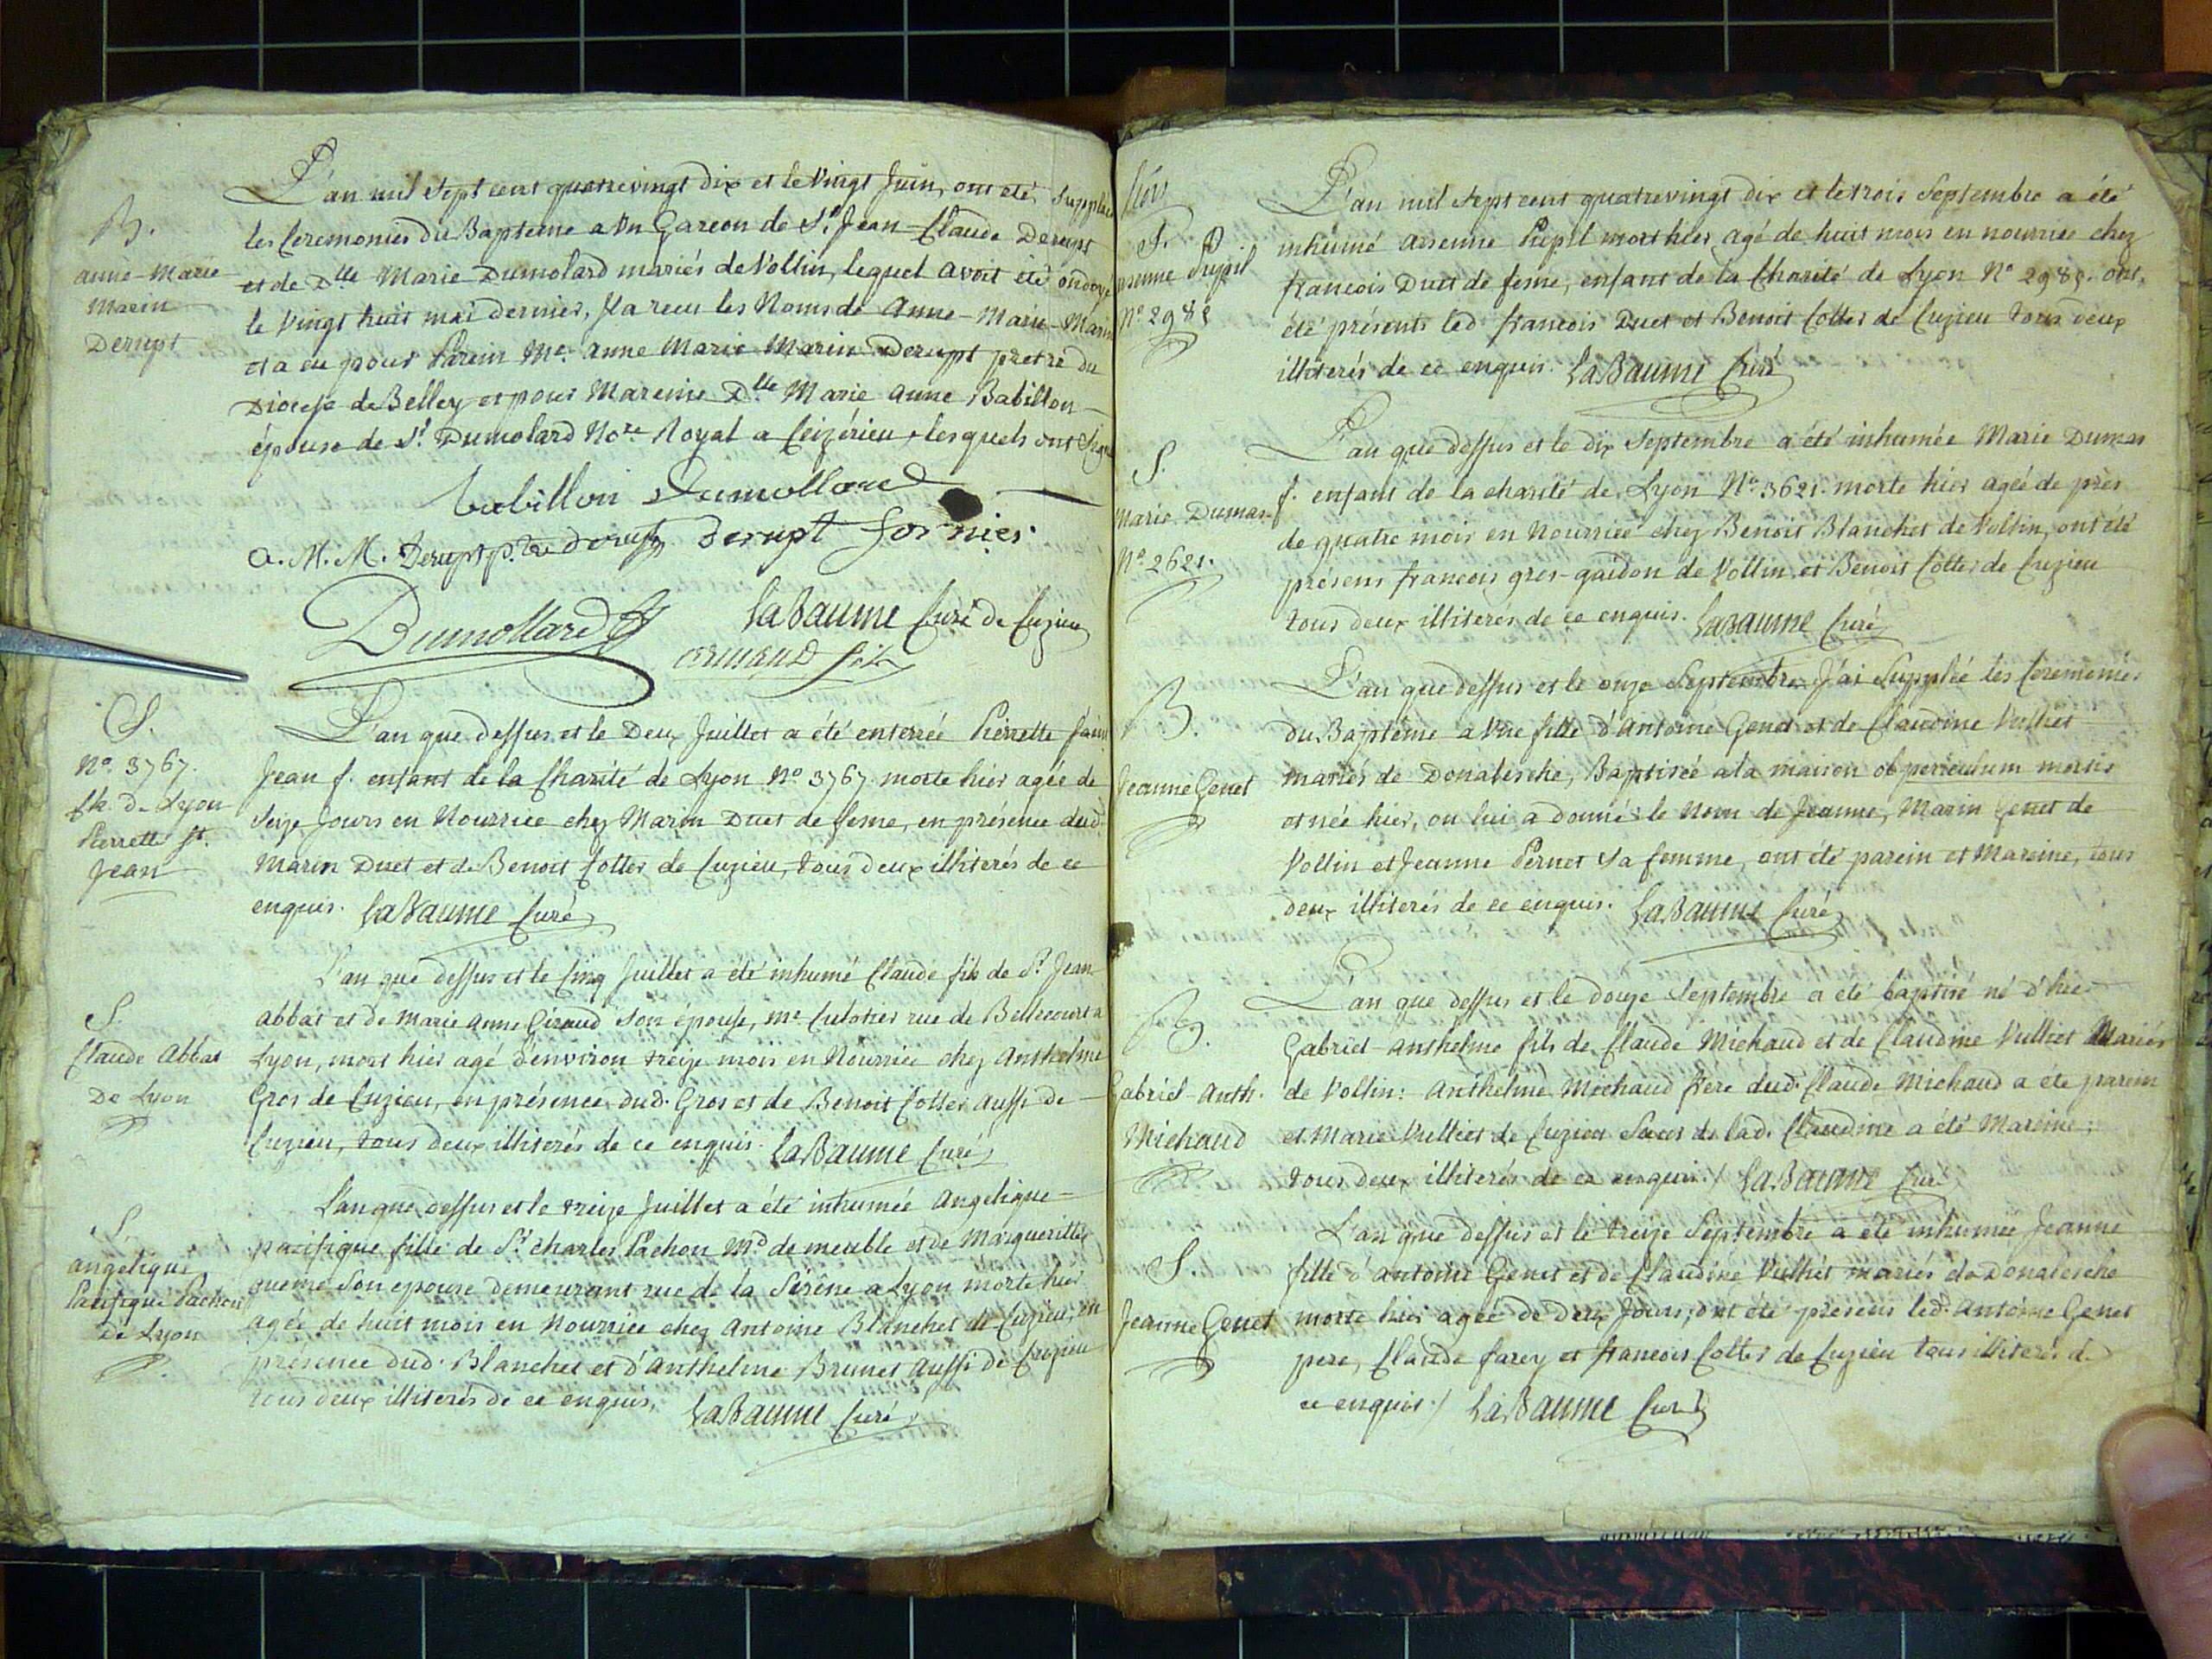 B.
anne-Marie
Marin
Derupt
L'an mil sept cent quatrevingt dix et le vingt Juin, ont été supplées
les Ceremonies du Bapteme a un Garcon de Sr. Jean-Claude Derupt
et de Dlle Marie Dumolard mariés de Vollin, lequel avoit été ondoyé
le vingt huit mai dernier, Il a recu les Noms de Anne-Marie-Marin
et a eu pour Parein Me. anne Marie Marin Derupt pretre du
Diocese de Belley et pour Mareine Dlle Marie anne Babillon
épouse de Sr. Dumolard Nore. Royal a Ceizérieu, lesquels ont signé
babillon Dumollard
a. M. M. Derupt ptre derupt Derupt fornier
Dumollard
LaBaume Curé de Cuzieu
S.
No. 3767.
ch. de Lyon
Pierrette St.
Jean
L'an que dessus et le Deux Juillet a été enterrée Pierrette saint
Jean f. enfant de la Charité de Lyon No 3767. morte hier agée de
seize Jours en Nourrice chez Marin Duet de fesne, en présence dud.
Marin Duet et de Benoit Cotter de Cuzieu, tous deux illiterés de ce
enquis. LaBaume Curé
S.
Claude Abbat
De Lyon
L'an que dessus et le Cinq Juillet a été inhumé Claude fils de Sr. Jean
abbat et de Marie Anne Giraud son épouse, me. Culotier rue de Bellecourt a
Lyon, mort hier agé d'environ treize mois en Nourrice chez Anthelme
Gros de Cuzieu, en présence dud. Gros et de Benoit Cotter aussi de
Cuzieu, tous deux illiterés de ce enquis. LaBaume Curé
S.
angelique
Pacifique Pachon
de Lyon
L'an que dessus et le treize Juillet a été inhumée Angelique-
pacifique fille de Sr. charles Pachon Md. de meuble et de Margueritte
son epouse demeurant rue de la Sirène a Lyon morte hier
agée de huit mois en Nourrice chez Antoine Blanchet de Cuzieu, en
présence dud. Blanchet et d'Anthelme Brunet aussi de Cuzieu
tous deux illiterés de ce enquis, LaBaume Curé
S.
No 298
L'an mil sept cent quatrevingt dix et le trois Septembre a été
inhumé arsenne Pupil mort hier, agé de huit mois en nourrice chez
francois Duet de fesne, enfant de la Charité de Lyon No 298 ont
été présents led. francois Duet et Benoit Cotter de Cuzieu tous deux
illiterés de ce enquis. LaBaume Curé
S.
Marie Dumas
No. 2621.
L'an que dessus et le dix Septembre a été inhumée Marie Dumas
f. enfant de la charité de Lyon No. 3621. morte hier agée de près
de quatre mois en Nourrice chez Benoit Blanchet de Vollin, ont été
présens francois gros-gaidon de Vollin et Benoit Cotter de Cuzieu
tous deux illiterés de ce enquis. LaBaume Curé
B.
Jeanne Genet
L'an que dessus et le onze Septembre J'ai Supplée les Ceremonies
du Baptême a une fille d'Antoine Genet et de Claudine Vulliet
mariés de Donalesche, Baptisée a la maison ob periculum mortis
et née hier, on lui a donné le Nom de Jeanne, Marin Genet de
Vollin et Jeanne Pernet sa femme, ont été parein et Mareine, tous
deux illiterés de ce enquis. LaBaume Curé
B.
Gabriel-Anth.
Michaud
L'an que dessus et le douze Septembre a été baptisé né d'hier
Gabriel-anthelme fils de Claude Michaud et de Claudine Vulliet Mariés
de Vollin: Anthelme Michaud frere dud. Claude Michaud a été parein
et Marie Vulliet de Cuzieu Sœur de lad. Claudine a été Mareine;
tous deux illiterés de ce enquis./ LaBaume Curé
S.
Jeanne Genet
L'an que dessus et le treize Septembre a été inhumée Jeanne
fille d'antoine Genet et de Claudine Vulliet mariés de Donalesche
morte hier agée de deux Jours; ont été présens led. antoine Genet
pere, Claude farey et francois Cotter de Cuzieu tous illiterés de
ce enquis./ LaBaume Curé